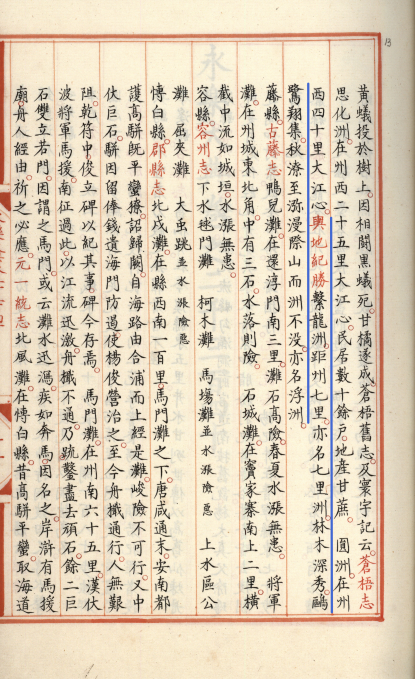 黃蟻投於樹上因相鬪黑蟻死甘橘遂成蒼梧舊志及寰宇記云蒼梧志
思化洲在州西二十五里大江心民居數十餘戶地產甘蔗 圓洲在州
西四十里大江心輿地紀勝繫龍洲距州七里亦名七里洲林木深秀鷗
鷺翔集秋潦至瀰漫際山而洲不没亦名浮洲
藤縣古藤志鴨兒灘在還淳門南三里灘石高險春夏水漲無患 將軍
灘在州城東北角中有三石水落則險 石城灘在竇家寨南上二里橫
截中流如城垣水漲無患
容縣容州志下水迷門灘 柯木灘 馬塲灘並水漲險惡 上水區公
灘 屈夾灘 大虫跳並水漲險惡
博白縣郡縣志北戍灘在縣西南一百里馬門灘之下唐咸通末安南都
護高駢既平蠻獠詔歸闕自海路由合浦而上經是灘峻險不可行又中
伏巨石駢因留俸錢遣海門防遏使楊俊營治之至今舟檝通行人無艱
阻乾符中俊立碑以紀其事碑今存焉 馬門灘在州南六十五里漢伏
波將軍馬援南征過此以江流迅激舟檝不通乃疏鑿盡去頑石餘二巨
石雙立若門因謂之馬門或云灘水迅濿疾如奔馬因名之岸滸有馬援
廟舟人經由祈之必應元一統志北風灘在博白縣昔高駢平蠻取海道